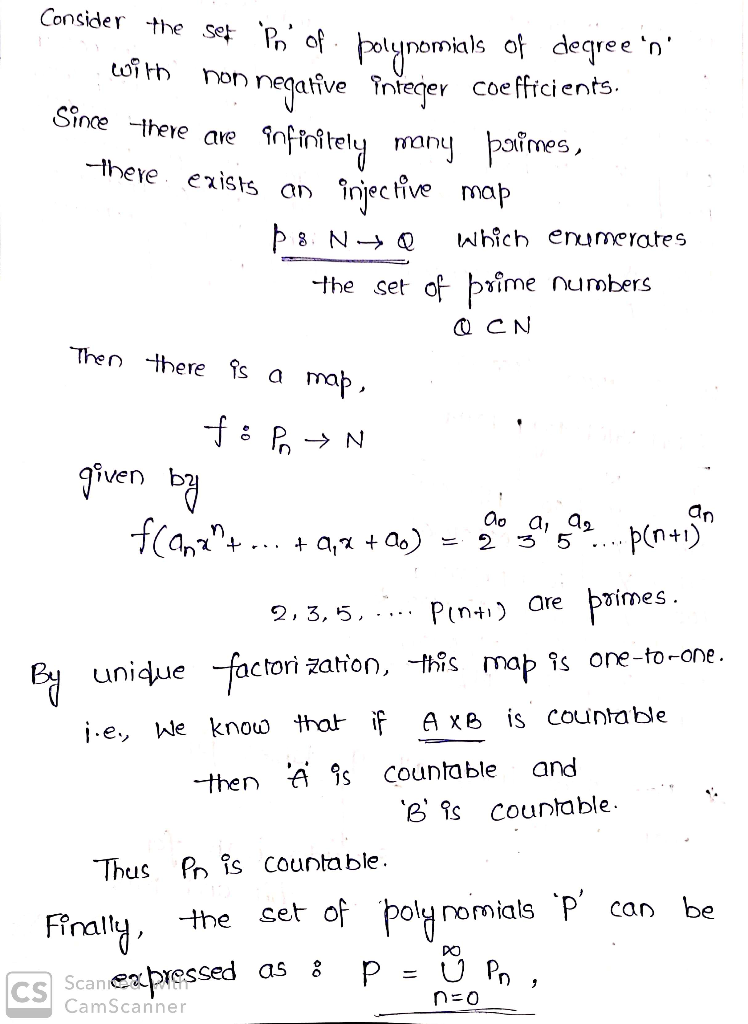 Consider the set 'Pn' of polynomials of degree 'n'
with non negative integer coefficients.
Since there are infinitely many primes,
there exists an injective map
p : N → Q which enumerates
the set of prime numbers
Q ⊂ N
Then there is a map,
f : Pn → N
given by
f(aₙxⁿ + ... + a₁x + a₀) = 2^a₀ 3^a₁ 5^a₂ .... p(n+1)^aₙ
2, 3, 5, ..... P(n+1) are primes.
By unique factorization, this map is one-to-one.
i.e., We know that if A x B is countable
then 'A' is countable and
'B' is countable.
Thus Pn is countable.
Finally, the set of polynomials 'P' can be
expressed as : P = ∞ ∪ n=0 Pn ,
CS Scanned with
CamScanner